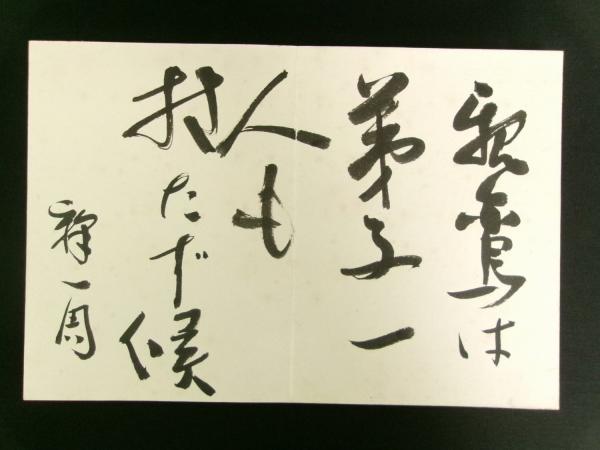 親鸞は
弟子一
人も
持たず候
釋一周